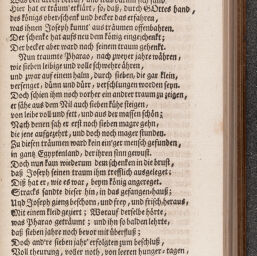 Hier hat er träum' erklärt, so, daß, durch GOttes hand,
des königs ober-schenk und becker das erfahren,
was ihnen Joseph kunnt' aus träumen offenbahren.
Der schenk' hat aufs neu dem könig eingeschenkt;
Der becker aber ward nach seinem traum gehenkt.
Nun traumte Pharao, nach zweyer jahre währen,
wie sieben leibige und volle schwehrähren,
und zwar auf einem halm, durch sieben, die gar klein,
versenget, dünn und dürr, verschlungen worden seyn.
Doch schien ihm noch vorher ein andrer traum zu zeigen,
er sähe aus dem Nil auch sieben kühe steigen,
von leibe voll und fett, und aus der maßen schön;
Nach denen sah er erst noch sieben magre gehn,
die jene aufgezehrt, und doch noch mager stunden.
Zu diesen träumen ward kein ein'ger mensch gefunden,
in ganz Egyptenland, der ihren sinn gewust.
Doch nun kam wiederum dem schenken in die brust,
daß Joseph seinen traum ihm trefflich ausgeleget;
Diß hat er, wie es war, beym könig angereget.
Stracks sandte dieser hin, in das gefangenhauß;
Und Joseph gieng beschorn, und frey, und frisch heraus,
Mit einem kleid geziert; Worauf derselbe hörte,
was Pharao geträumt; und ihn so bald an lehrte,
daß sieben jahre noch bevor mit überfluß;
Doch andre sieben jahr' erfolgten zum beschluß,
Voll theurung, voller noth, von leeren hunger-tagen,